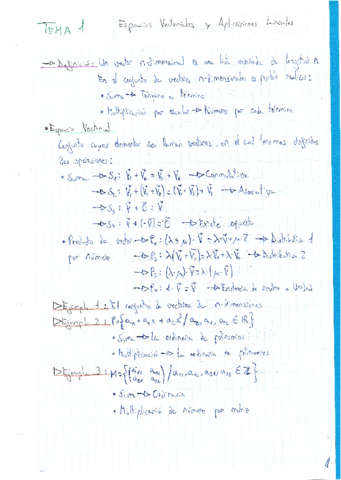 TEMA 1 Espacios Vectoriales y Aplicaciones Lineales
→ Definición: Un vector n-dimensional es una lista ordenada de longitud n
En el conjunto de vectores n-dimensionales es posible realizar:
• Suma → Término a término
• Multiplicación por escalar → Número por cada término
• Espacio Vectorial
Conjunto cuyos elementos se llaman vectores, en el cual tenemos definidas
dos operaciones:
• Suma → S₁: V⃗₁ + V⃗₂ = V⃗₂ + V⃗₁ → Conmutativa
→ S₂: V⃗₁ + (V⃗₂ + V⃗₃) = (V⃗₁ + V⃗₂) + V⃗₃ → Asociativa
→ S₃: V⃗ + 0⃗ = V⃗
→ S₄: V⃗ + (-V⃗) = 0⃗ → Existe opuesto
• Producto de vector → P₁: (λ + μ)·V⃗ = λ·V⃗ + μ·V⃗ → Distributiva 1
por número → P₂: λ(V⃗₁ + V⃗₂) = λ·V⃗₁ + λ·V⃗₂ → Distributiva 2
→ P₃: (λ·μ)·V⃗ = λ·(μ·V⃗)
→ P₄: 1·V⃗ = V⃗ → Existencia de neutro o Unidad
▷ Ejemplo 1: El conjunto de vectores de n-dimensiones
▷ Ejemplo 2: P = {a₀ + a₁x + a₂x² / a₀, a₁, a₂ ∈ ℝ}
• Suma → La ordinaria de polinomios
• Multiplicació → La ordinaria de polinomios
▷ Ejemplo 3: M = {(a₁₁ a₁₂ a₂₁ a₂₂) / a₁₁, a₁₂, a₂₁, a₂₂ ∈ ℤ}
• Suma → Ordinaria
• Multiplicación de número por matriz
1